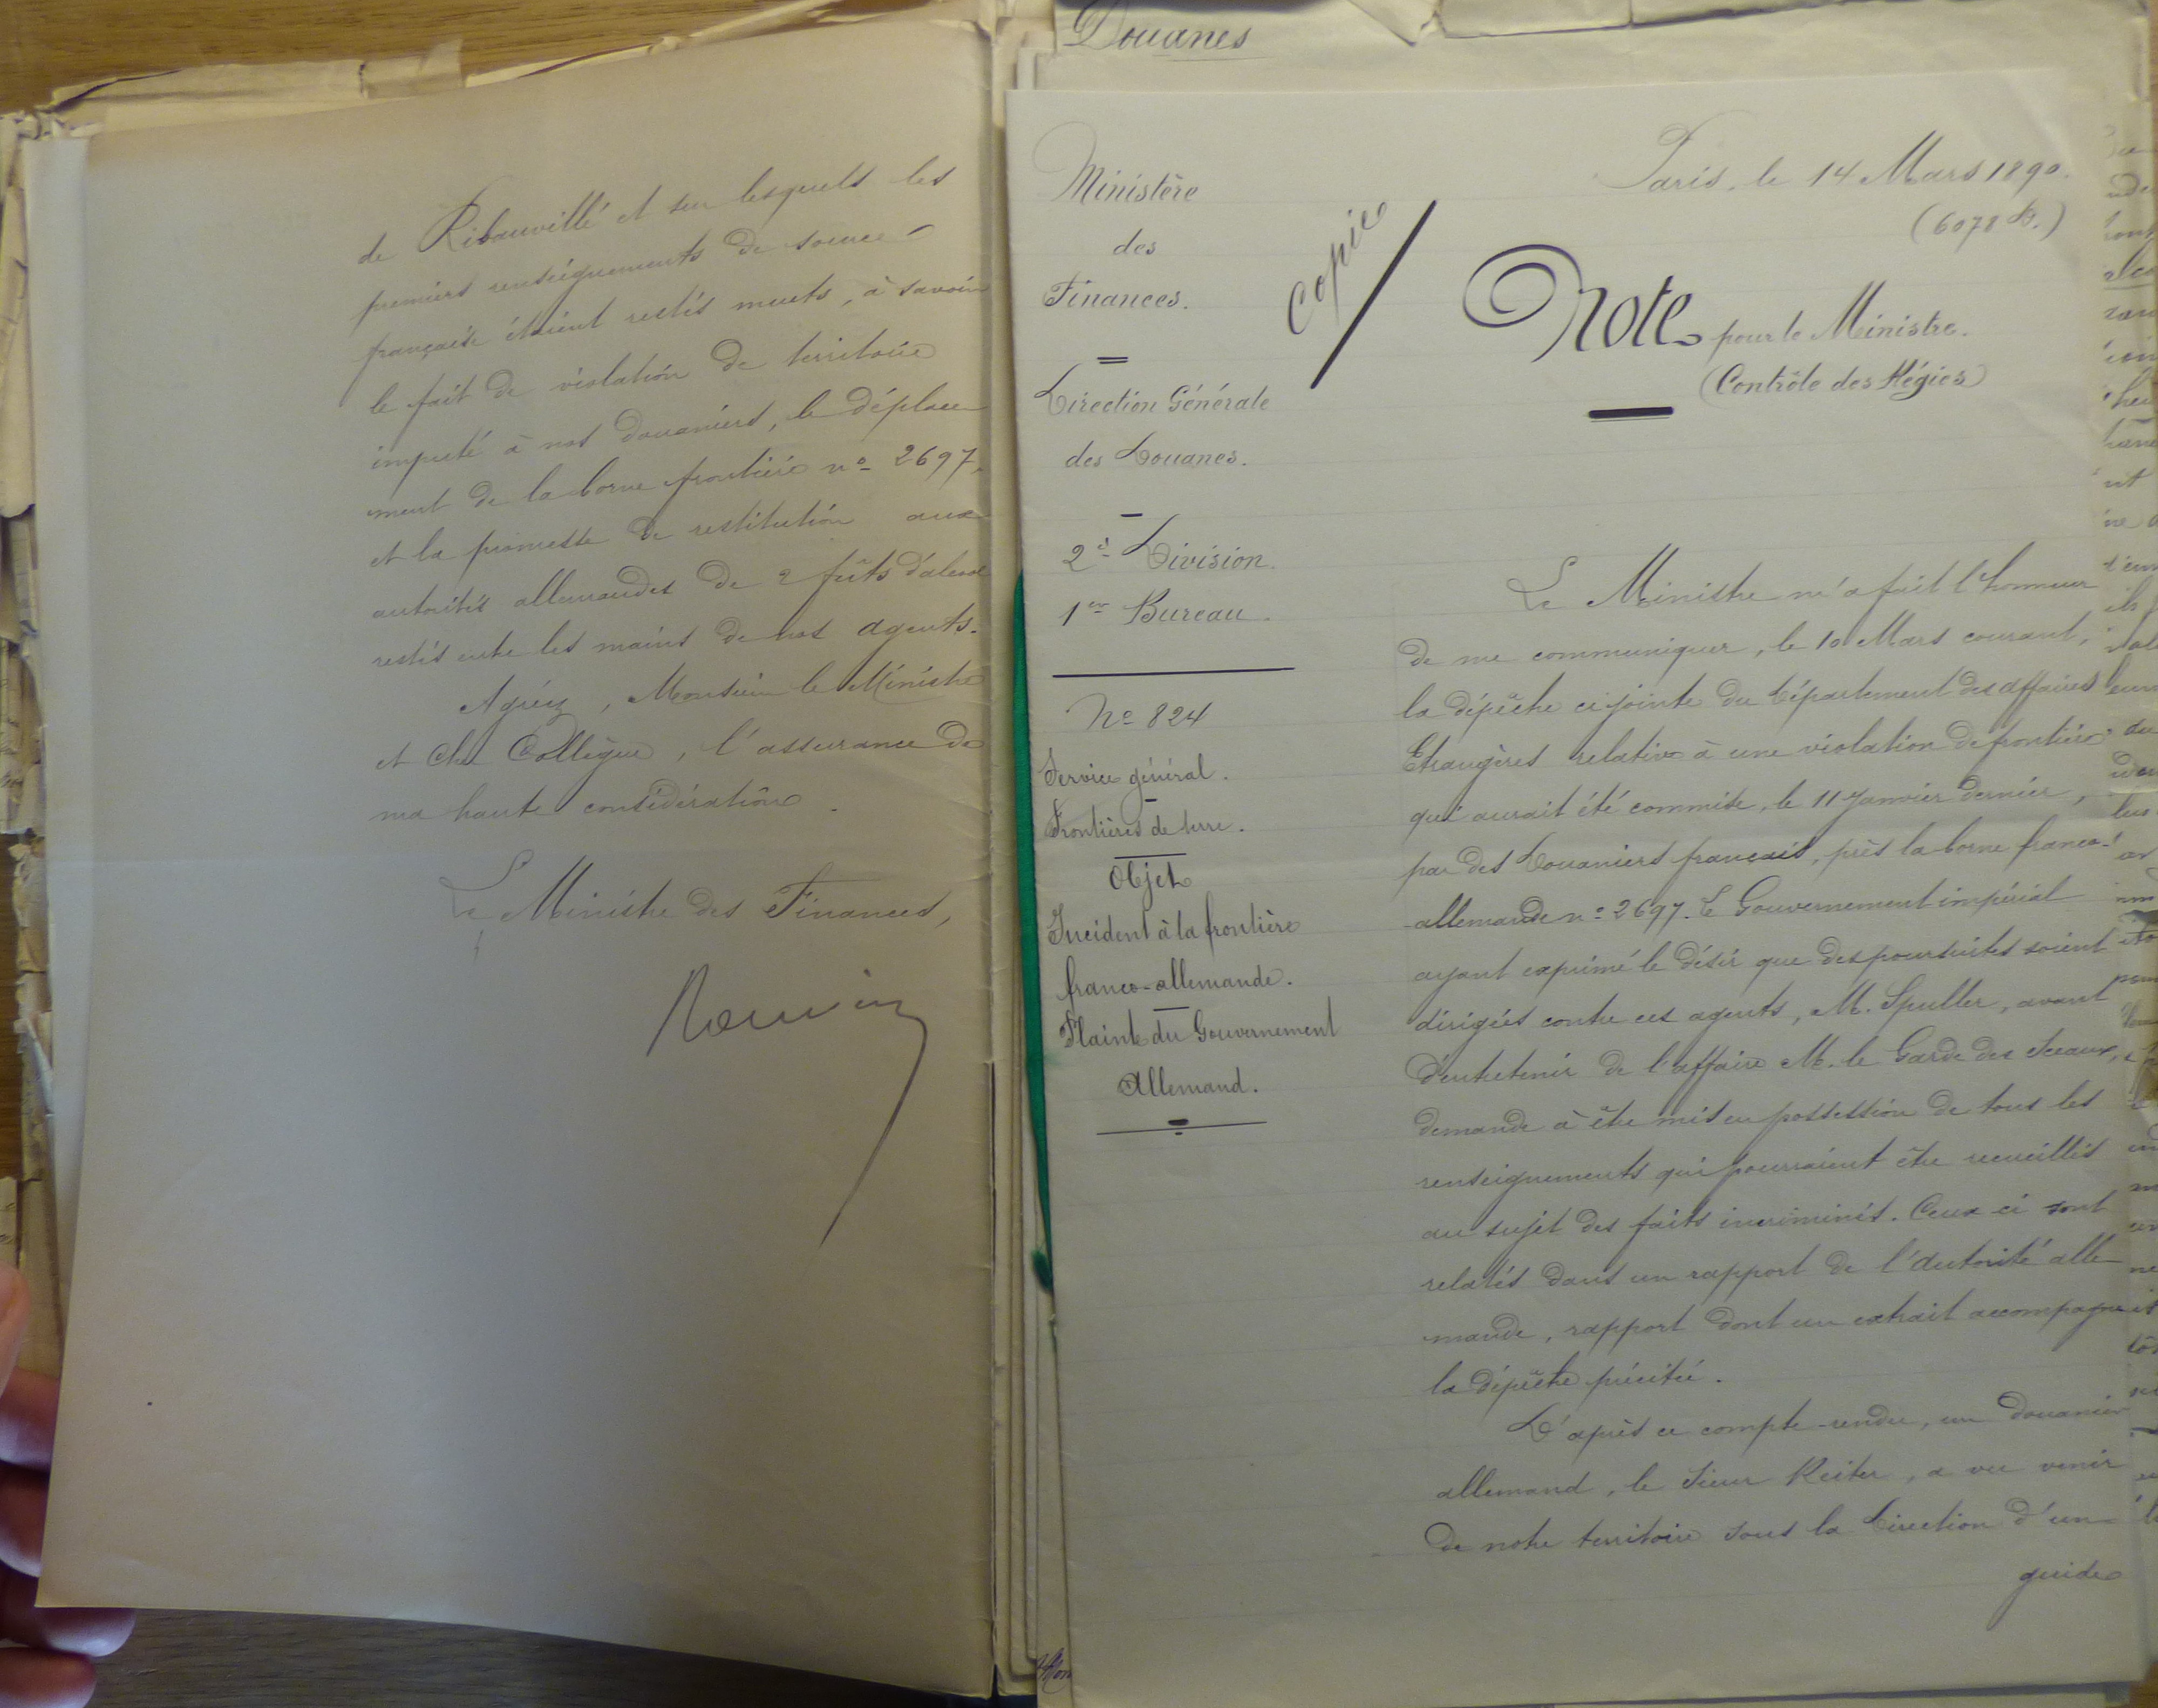 de Ribauvillé et sur lesquels les
premiers renseignements de source
française étaient restés muets, à savoir
le fait de violation de territoire
imputé à nos douaniers, le déplace
ment de la borne frontière nº 2697,
et la promesse de restitution aux
autorités allemandes de 2 fûts d'alcool
restés entre les mains de nos agents.
Agréez, Monsieur le Ministre
et Cher Collègue, l'assurance de
ma haute considération.
Le Ministre des Finances,
Rouvier
Douanes
Ministère
des
Finances.
Direction Générale
des Douanes.
2e Division.
1er Bureau.
Nº 824
Service général.
Frontières de terre.
Objet
Incident à la frontière
franco-allemande.
Plainte du Gouvernement
Allemand.
Copie
Paris, le 14 Mars 1890.
(6078 D.)
Note pour le Ministre.
(Contrôle des Régies)
Le Ministre m'a fait l'honneur
de me communiquer, le 10 Mars courant,
la dépêche ci-jointe du Département des affaires
Etrangères relative à une violation de frontière
qui aurait été commise, le 11 Janvier dernier,
par des Douaniers français, près la borne franco-
allemande nº 2697. Le Gouvernement impérial
ayant exprimé le désir que des poursuites soient
dirigées contre ces agents, M. Spuller, avant
d'entretenir de l'affaire M. le Garde des Sceaux,
demande à être mis en possession de tous les
renseignements qui pourraient être recueillis
au sujet des faits incriminés. Ceux ci sont
relatés dans un rapport de l'autorité alle
mande, rapport dont un extrait accompagne
la dépêche précitée.
D'après ce compte-rendu, un douanier
allemand, le Sieur Reiter, a vu venir
de notre territoire sous la Direction d'un
guide